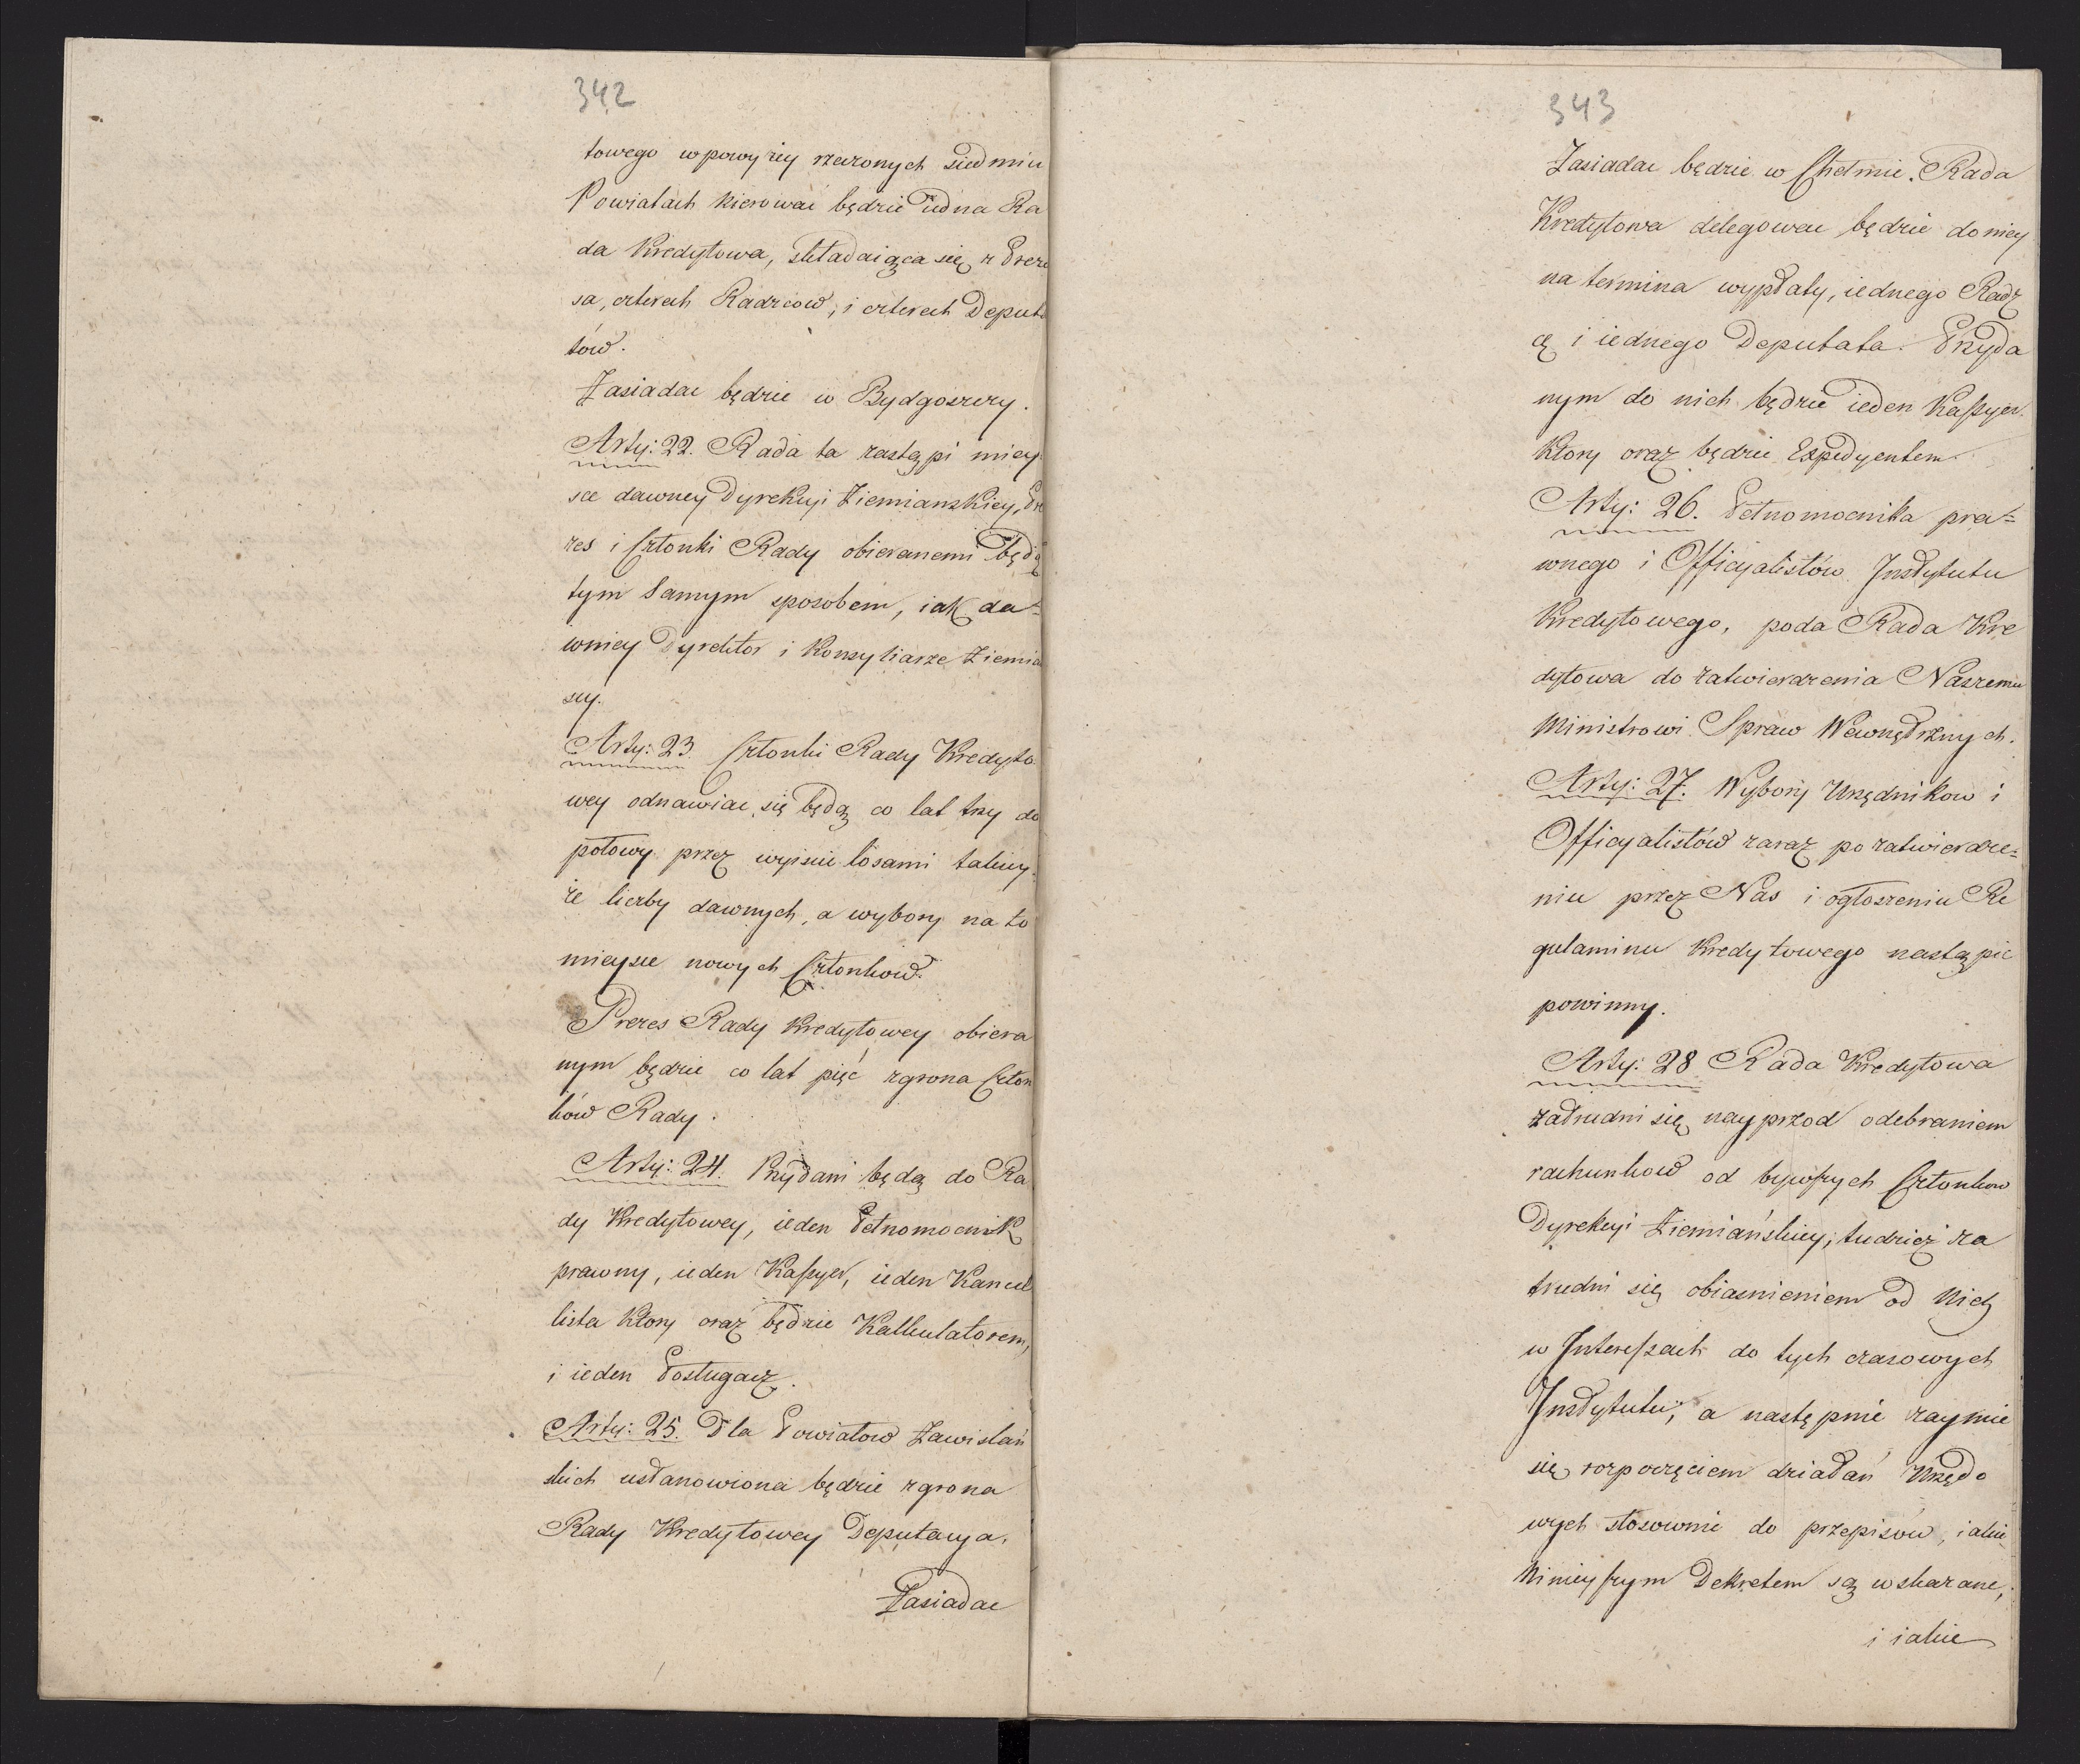 342
towego w powyżey rzeczonych siedmiu
Powiatach kierować będzie iedna Ra
da Kredytowa, składaiąca się z Preze
sa, czterech Radzców, i czterech Deputa
tów.
Zasiadac będzie w Bydgoszczy.
Arty: 22. Rada ta zastąpi miey
sce dawney Dyrekcyi Ziemianskiey, Pre
zes i Członki Rady obieranemi będą
tym samym sposobem, iak da=
wniey Dyrektor i Konsyliarze Ziemia
scy.
Arty: 23. Członki Rady Kredyto
wey odnawiac się będą co lat trzy do
połowy przez wyiscie losami takiey
że liczby dawnych, a wybory na to
mieysce nowych Członkow.
Prezes Rady Kredytowey obiera
nym będzie co lat pięć z grona Człon
ków Rady.
Arty: 24. Przydani będą do Ra
dy Kredytowey, ieden Pełnomocnik
prawny, ieden Kassyer, ieden Kancel
lista który oraz będzie Kalkulatorem,
i ieden Posługacz.
Arty: 25. Dla Powiatow Zawislań
skich ustanowiona będzie z grona
Rady Kredytowey Deputacya.
Zasiadac
343
Zasiadac będzie w Chełmie. Rada
Kredytowa delegowac będzie do niey
na termina wypłaty, iednego Radz
cę i iednego Deputata. Przyda
nym do nich będzie ieden Kassyer
ktory oraz będzie Expedyentem.
Arty: 26. Pełnomocnika pra=
wnego i Officyalistów Instytutu
Kredytowego, poda Rada Kre
dytowa do zatwierdzenia Naszemu
Ministrowi Spraw Wewnętrznych.
Arty: 27. Wybory Urzędnikow i
Officyalistów zaraz po zatwierdze=
niu przez Nas i ogłoszeniu Re
gulaminu Kredytowego nastąpic
powinny.
Arty: 28 Rada Kredytowa
zatrudni się nayprzod odebraniem
rachunkow od bywszych Członkow
Dyrekcyi Ziemiańskiey; tudzież za
trudni się obiasnieniem od nich
w Interessach do tych czasowych
Instytutu, a następnie zaymie
się rozpoczęciem działań Urzędo
wych stosownie do przepisów, iakie
Ninieyszym Dekretem są wskazane,
i iakie